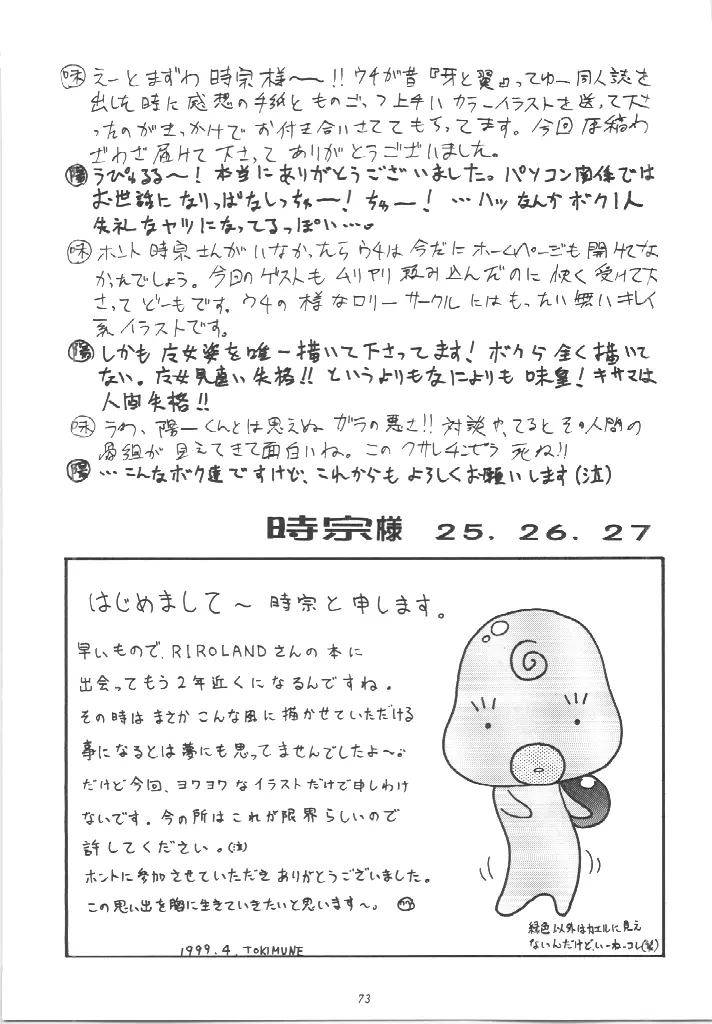 味 えーとまずわ 時宗様〜〜!! ウチが昔『牙と翼』ってゆー同人誌を
出した時に 感想の手紙と ものごっつ上手い カラーイラストを送って下さ
ったのがきっかけで お付き合いさせてもらってます。今回 原稿わ
ざわざ届けて 下さって ありがとうございました。
陽 うぴゅるる〜! 本当にありがとうございました。パソコン関係では
お世話になりっぱなしっちゅー! ちゅー! …ハッ なんか ボク1人
失礼なヤツになってるっぽい…。
味 ホント 時宗さんがいなかったら ウチは 今だに ホームページも 開けてな
かったでしょう。今回のゲストも ムリヤリ 頼み込んだのに 快く 受けて下
さって どーもです。ウチの 様な ロリー サークル にはもったい 無い キレイ
系 イラストです。
陽 しかも 女姿を唯一描いて下さってます! ボクら 全く描いて
ない。女見直い 失格!! というよりもなによりも 味皇! キサマは
人間失格!!
味 うわ、陽一くんとは思えぬ ガラの悪さ!! 対談や、てると その人間の
が 見えてきて面白いね。この クサレ 死ね!!
陽 …こんなボク達ですけど、これからも よろしくお願いします(泣)
時宗様 25. 26. 27
はじめまして〜 時宗と申します。
早いもので、RIROLANDさんの本に
出会ってもう2年近くになるんですね。
その時は まさか こんな風に描かせていただける
事になるとは夢にも思ってませんでしたよ〜。
だけど今回、ヨワヨワなイラストだけで申しわけ
ないです。今の所はこれが限界らしいので
許してください。(泣)
ホントに参加させていただき ありがとうございました。
この思い出を胸に生きていきたいと思います〜。
緑色以外はカエルに見え
ないんだけど、いーねーコレ(笑)
1999.4. TOKIMUNE
73